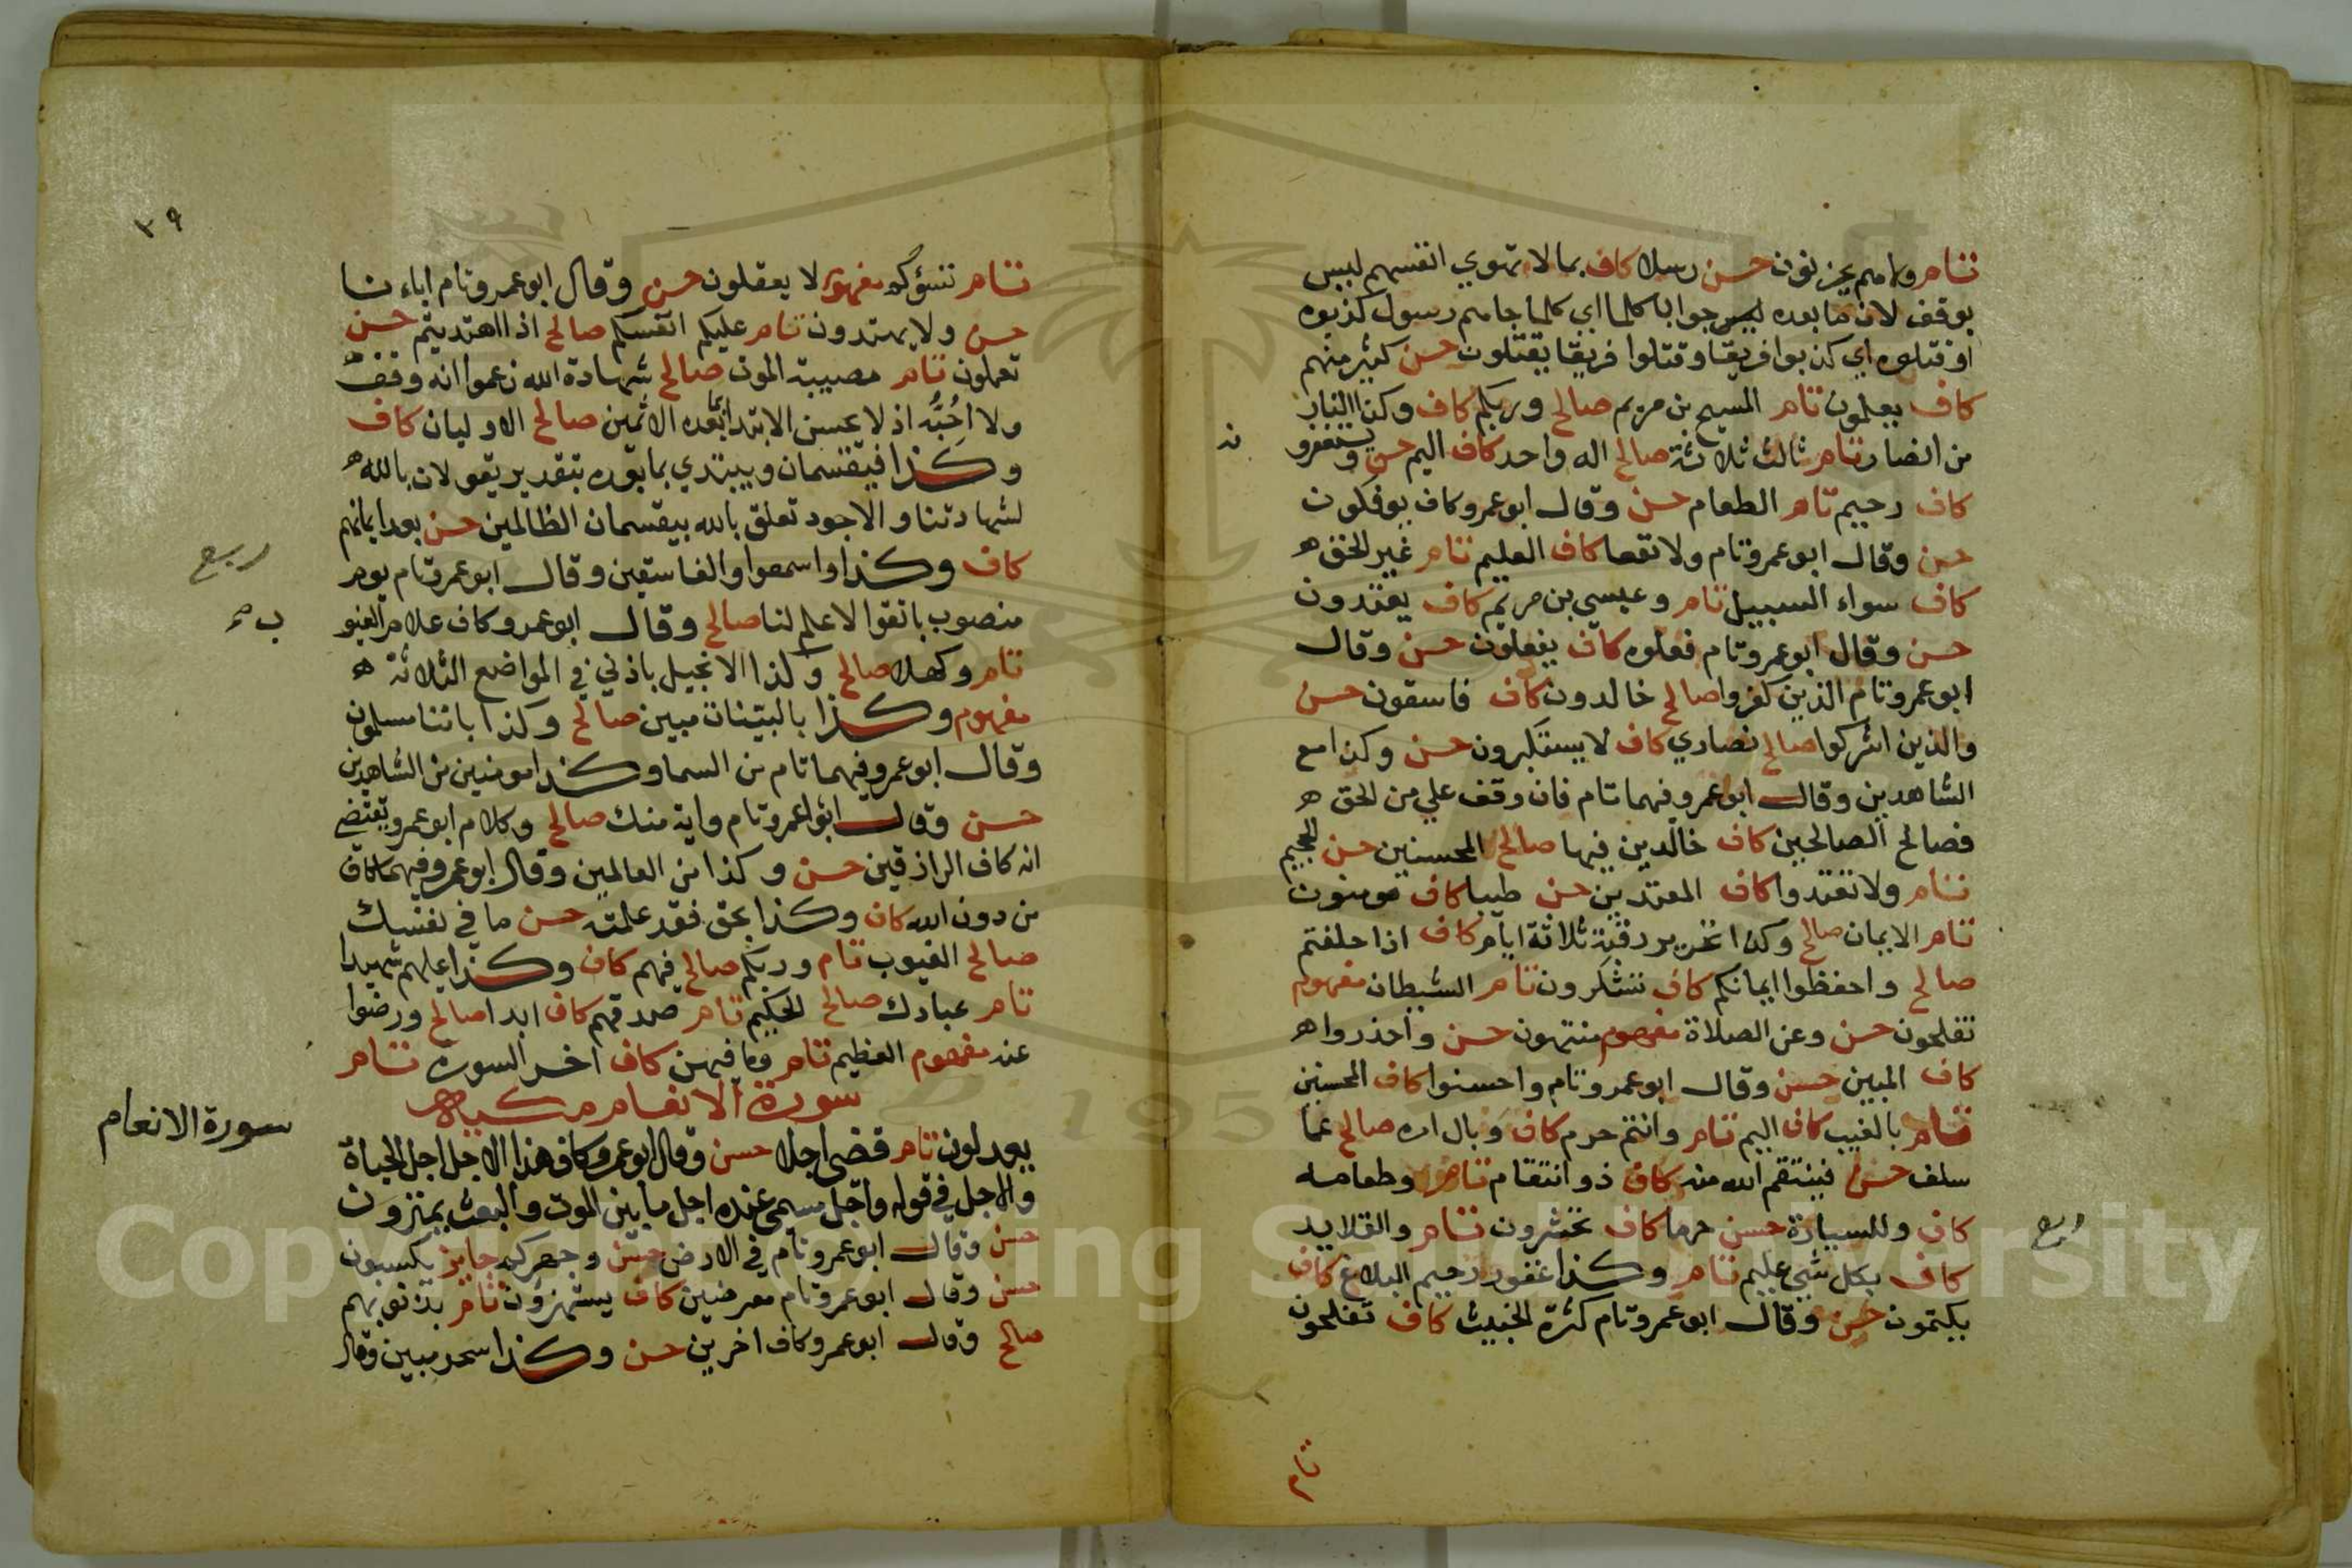 تام ولا هم يحزنون حسن رسلا كاف بما لا تهوي انفسهم ليس
بوقف لان ما بعده جوابا كلما اي كلما جاهم رسول كذبوه
او قتلوه اي كذبوا فريقا وقتلوا فريقا يقتلون حسن كثير منهم
كاف يعملون تام المسيح بن مريم صالح وربكم كاف وكذا النار
من انصار تام ثالث ثلاثة صالح اله واحد كاف اليم حسن ويستغفرو
نه
كاف رحيم تام الطعام حسن وقال ابو عمرو كاف يوفكون
حسن وقال ابو عمرو تام ولا نفعا كاف العليم تام غير الحق ه
كاف سواء السبيل تام وعيسي بن مريم كاف يعتدون
حسن وقال ابو عمرو تام فعلوه كاف يفعلون حسن وقال
ابو عمرو تام الذين كفروا صالح خالدون كاف فاسقون حسن
والذين اشركوا صالح نصاري كاف لا يستكبرون حسن وكذا مع
الشاهدين وقال ابو عمرو فيهما تام فان وقف علي من الحق ه
فصالح الصالحين كاف خالدين فيها صالح المحسنين حسن الجحيم
تام ولا تعتدوا كاف المعتدين حسن طيبا كاف مومنون
تام الايمان صالح وكذا تحرير رقبة ثلاثة ايام كاف اذا حلفتم
صالح واحفظوا ايمانكم كاف تشكرون تام الشيطان مفهوم
تفلحون حسن وعن الصلاة مفهوم منتهون حسن واحذروا ه
كاف المبين حسن وقال ابو عمرو تام واحسنوا كاف المحسنين
تام بالغيب كاف اليم تام وانتم حرم كاف وبال امره صالح عما
سلف حسن فينتقم الله منه كاف ذو انتقام تام وطعامه
كاف وللسيارة حسن حرما كاف تحشرون تام والقلايد
ربع
كاف بكل شي عليم تام وكذا غفور رحيم البلاغ كاف
يكتمون حسن وقال ابو عمرو تام كثرة الخبيث كاف تفلحون
تام
٣٩
تام تسؤكم مفهوم لا يعقلون حسن وقال ابو عمرو تام اباءنا
حسن ولا يهتدون تام عليكم انفسكم صالح اذا اهتديتم حسن
تعملون تام مصيبة الموت صالح شهادة الله زعموا انه وقف
ولا احبه اذ لا يحسن الابتدا بما بعده الاثمين صالح الاوليان كاف
وكذا فيقسمان ويبتدي بما بعده بتقدير يقولان بالله ه
لشهادتنا والاجود تعلق بالله بيقسمان الظالمين حسن بعد ايمانهم
ربع
كاف وكذا واسمعوا والفاسقين وقال ابو عمرو تام يوم
منصوب باتقوا لا علم لنا صالح وقال ابو عمرو كاف علام الغيو
ب
تام وكهلا صالح وكذا الانجيل باذني في المواضع الثلاثة ه
مفهوم وكذا بالبينات مبين صالح وكذا باننا مسلمون
وقال ابو عمرو فيهما تام من السما وكذا مومنين من الشاهدين
حسن وقال ابو عمرو تام واية منك صالح وكلام ابو عمرو يقتضي
انه كاف الرازقين حسن وكذا من العالمين وقال ابو عمرو فيهما كاف
من دون الله كاف وكذا بحق فقد علمته حسن ما في نفسك
صالح الغيوب تام وربكم صالح فيهم كاف وكذا عليهم شهيدا
تام عبادك صالح الحكيم تام صدقهم كاف ابدا صالح ورضوا
عنه مفهوم العظيم تام وما فيهن كاف اخر السورة تام
سورة الانعام مكية
سورة الانعام
يعدلون تام قضي اجلا حسن وقال ابو عمرو كاف هذا الاجل اجل الحياة
والاجل في قوله واجل مسمي عنده اجل ما بين الموت والبعث يمترون
حسن وقال ابو عمرو تام في الارض حسن وجهركم جايز يكسبون
حسن وقال ابو عمرو تام معرضين كاف يستهزؤن تام بذنوبهم
صالح وقال ابو عمرو كاف اخرين حسن وكذا سحر مبين وقال
Copyright © King Saud University
195